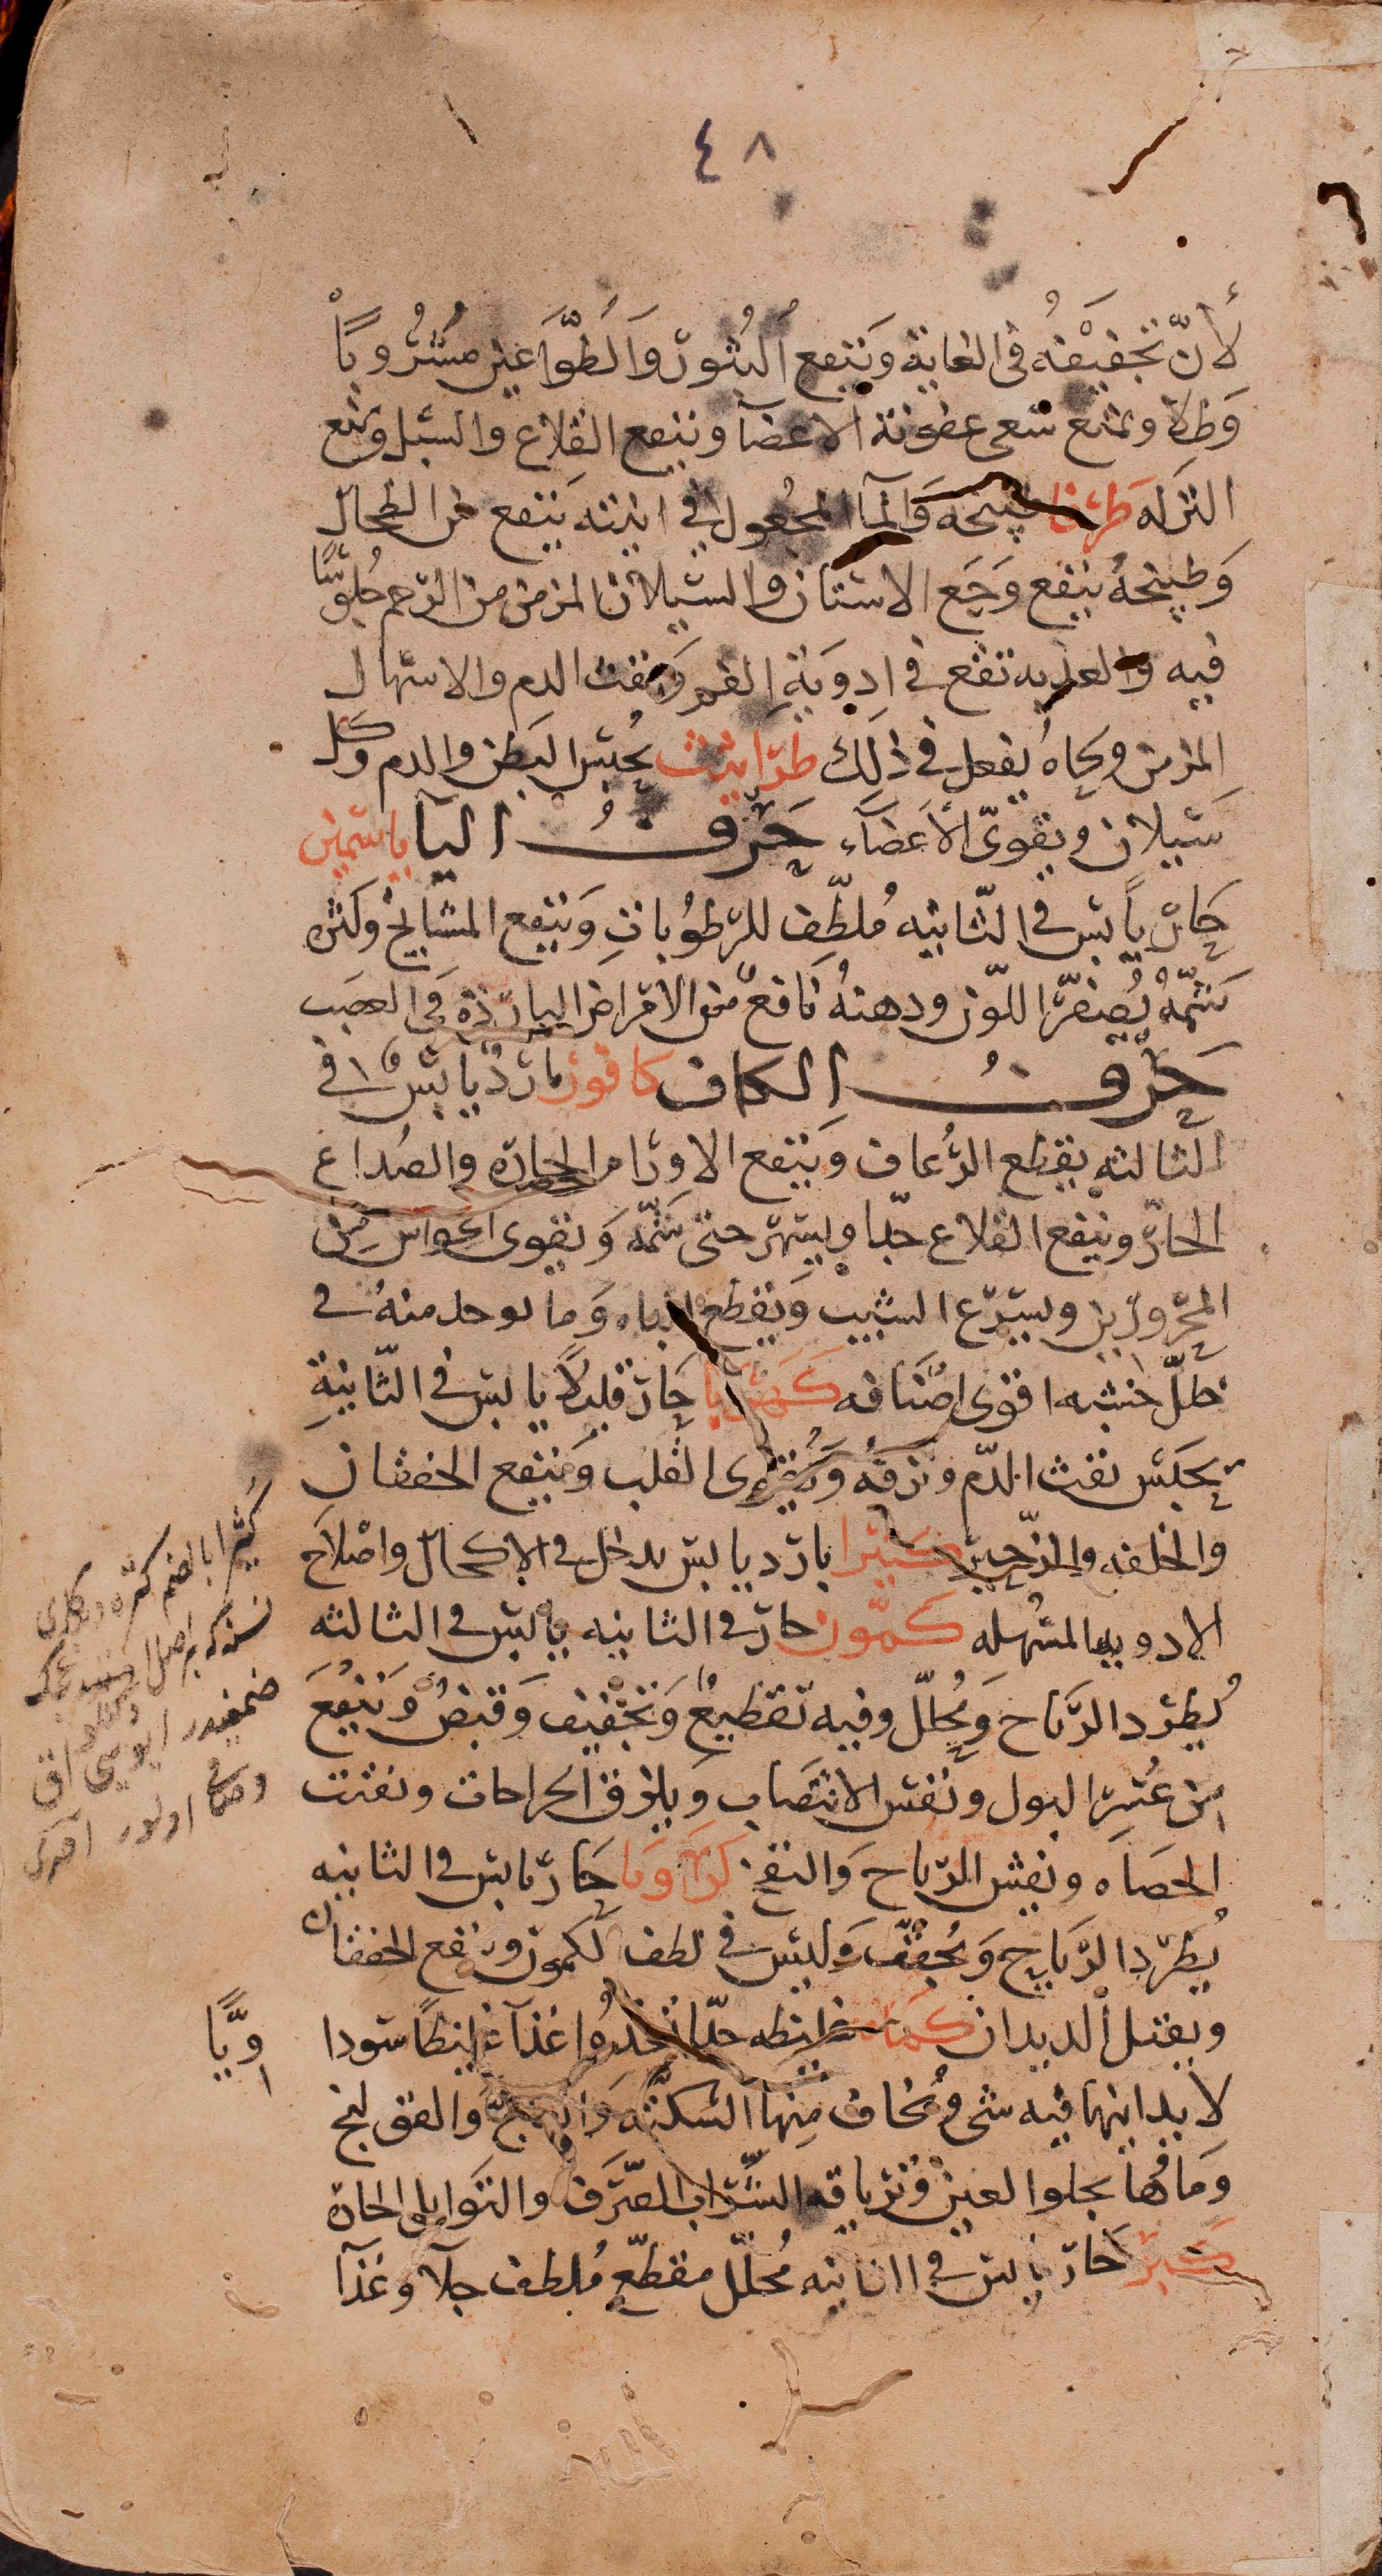 ٤٨
لأنّ تجفيفه في الغاية وينفع البثور والطّواعين مشروباً
وطلا ويمنع سعى عفونة الاعضآ وينفع القلاع والسبل ويمنع
النزله طرفا طبيخه والمآ المجعول في انيته ينفع من الطحال
وطبيخه ينفع وجع الاسنان والسيلان المزمن من الرحم جلوسًا
فيه والعذبه تقع في ادوية الفم ونفث الدم والاسهال
المزمن ولحاه يفعل في ذلك طراثيث يحبس البطن والدم وكل
سيلان ويقوى الأعضآء حرف اليا ياسمين
حار يابس في الثانيه ملطّف للرطوبات وينفع المشايخ وكثره
شمّه يصفّر اللون ودهنه نافع من الامراض البارده في العصب
حرف الكاف كافور بارد يابس في
الثالثه يقطع الرعاف وينفع الاورام الحاره والصداع
الحارّ وينفع القلاع جدا ويسهر حتى شمّه ويقوى الحواس من
المحرورين ويسرع الشيب ويقطع الباه وما يوجد منه في
خلل خشبه اقوى اصنافه كهربا حار قليلاً يابس في الثانية
يحبس نفث الدم ونزفه ويقوى القلب وينفع الخفقان
والخلفه والزحير كثيرا بارد يابس يدخل في الاكحال واصلاح
الادويه المسهله كمّون حار في الثانيه يابس في الثالثه
يطرد الرياح ويحلل وفيه تقطيع وتجفيف وقبض وينفع
من عسر البول ونفس الانتصاب ويلزق الجراحات ويفتت
الحصاه ويفش الرياح والنفخ كراويا حار يابس في الثانيه
يطرد الرياح ويجفف وليس في لطف الكمون وينفع الخفقان
ويقتل الديدان كماه غليظه جدّا تغذوا غذآ غليظاً سوداويًّا
لا يدانيها فيه شى ويخاف منها السكته والفالج والقولنج
وماؤها يجلوا العين وترياقه الشراب الصّرف والتوابل الحارة
كبر حار يابس في الثانيه محلل مقطّع ملطف جلآ وغذآ
كثيرا بالضم كتره